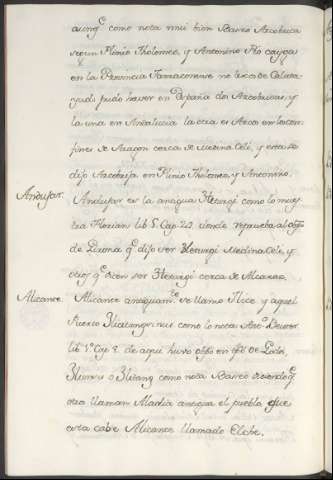 aunq.e como nota mui bien Barro Arcobrica
segun Plinio Tholomeo, y Antonino Pio cayga
en la Provincia Tarraconense no lexos de Calata-
yud: pudo haver en España dos Arcobricas, y
la una en Andalucia la otra es Arcos en los con-
fines de Aragon cerca de Medina Celi, y esta se
dijo Arcobrija en Plinio Tholomeo y Antonino.
Andujar. Andujar es la antigua Iliturgi como lo mues-
tra Florian lib. 5. Cap. 23 donde reprueba al obpo
de Girona q.e dijo ser Iliturgi Medina Celi, y
otros q.e dicen ser Iliturgi cerca de
Alicante. Alicante antiguam.te se llamo Ilice y aquel
Puerto como lo nota Ant.o Beuter
lib. 1.o Cap. 8. de aqui huvo obpo en tpo de Godos,
Ilicinus o como nota Barro diciendo q.e
otro llaman a el pueblo que
esta cabe Alicante llamado Elche.